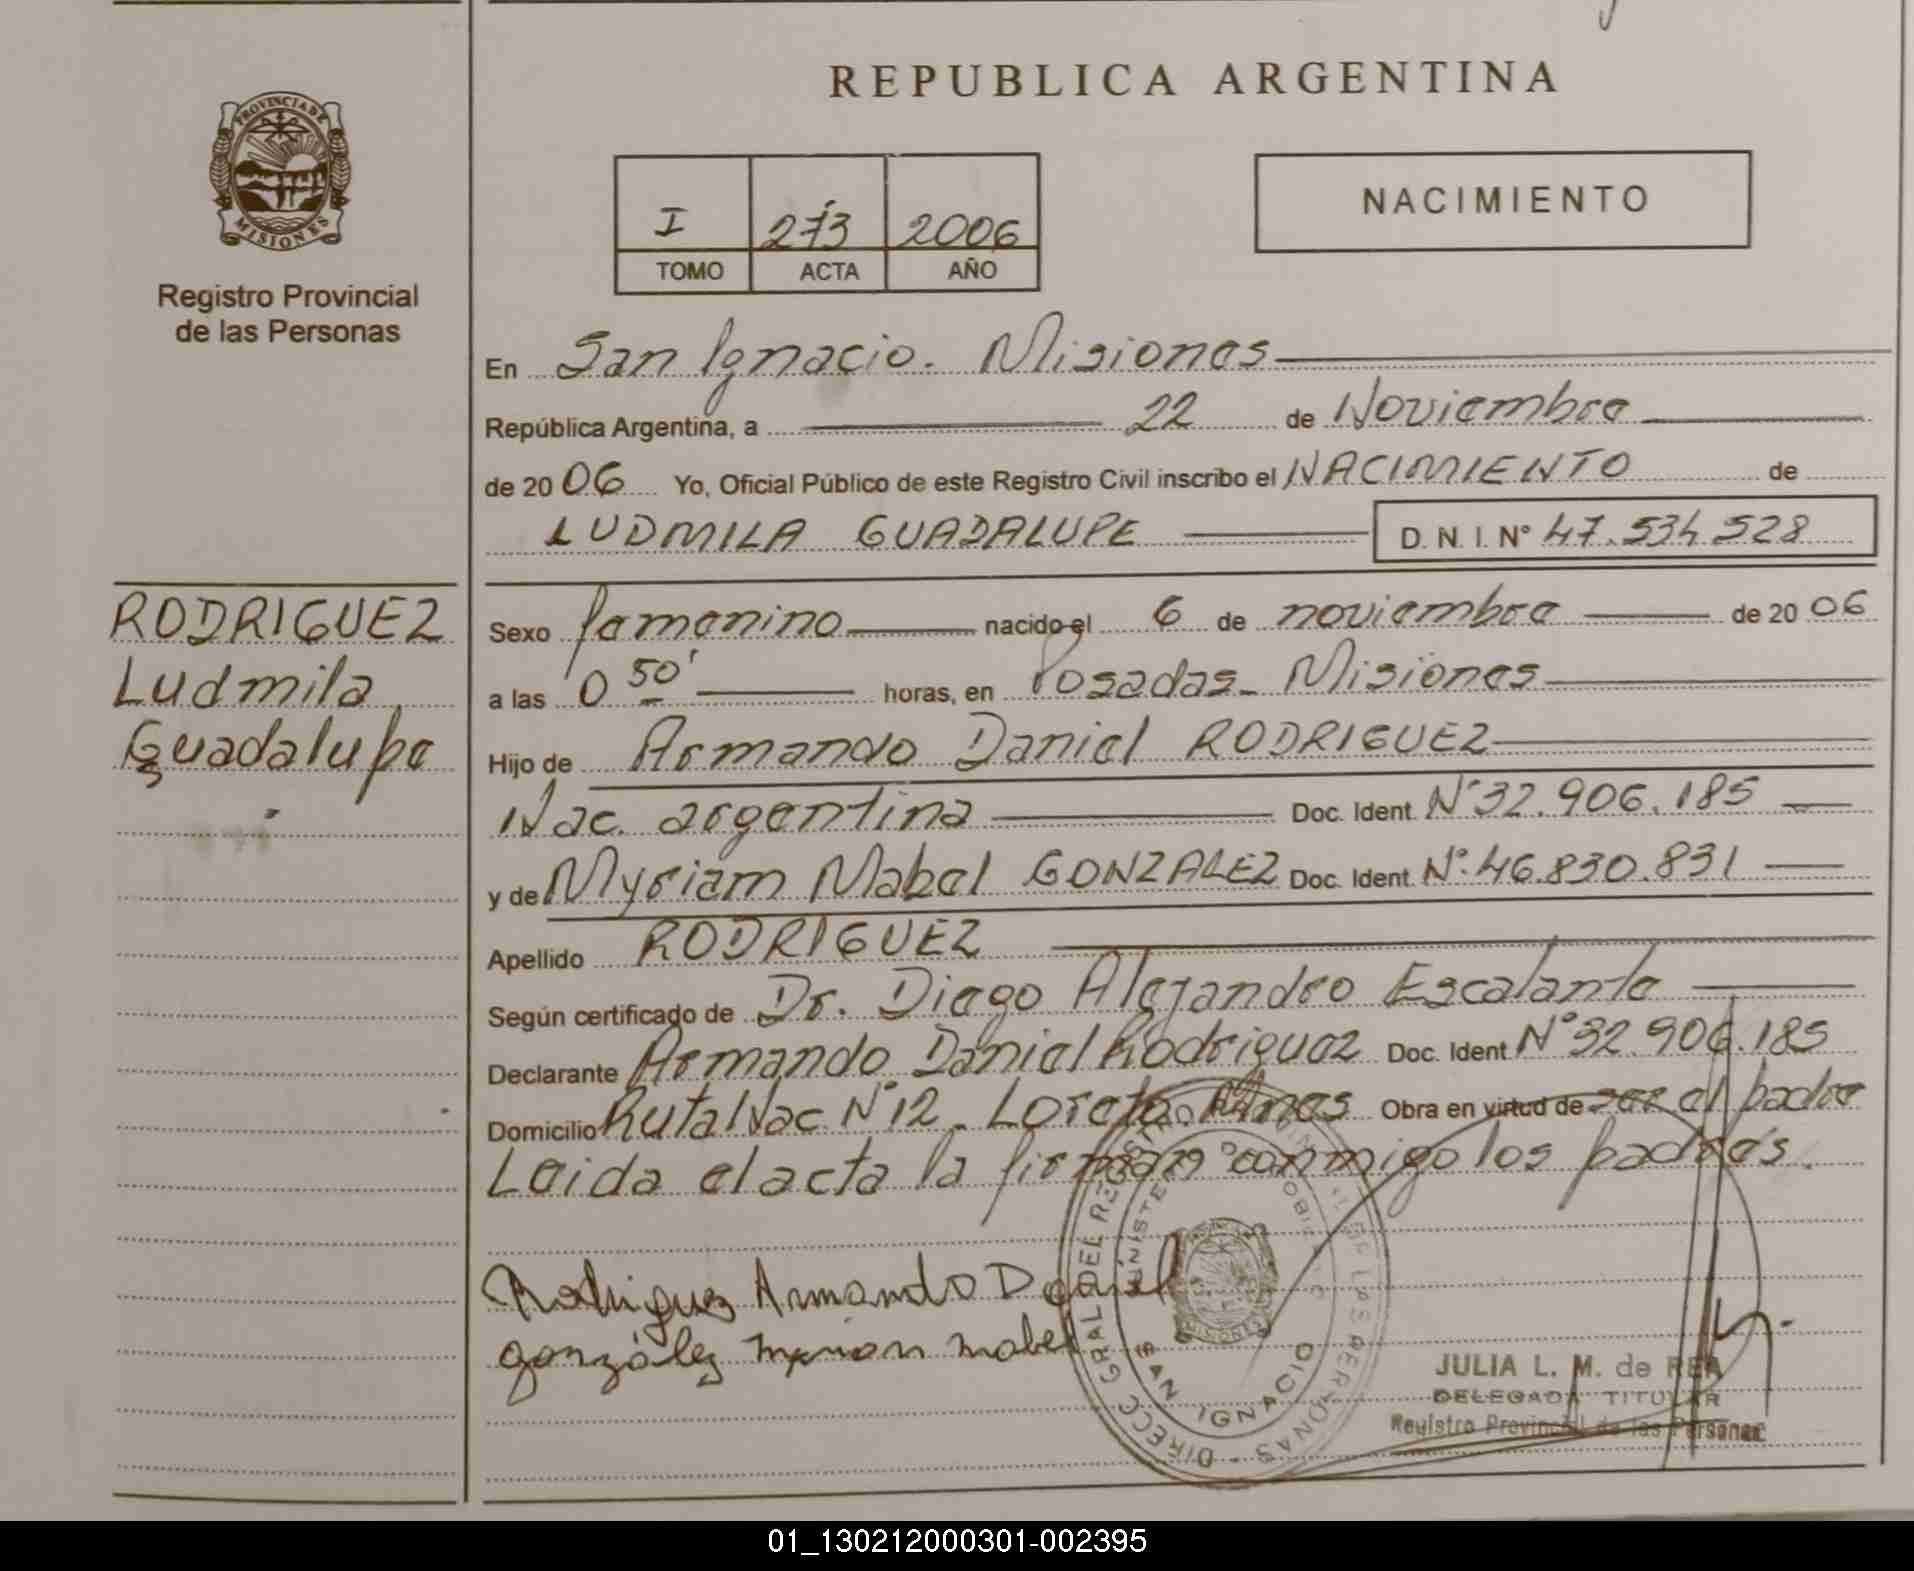 REPUBLICA ARGENTINA
PROVINCIA DE
MISIONES
Registro Provincial
de las Personas
I 273 2006
TOMO ACTA AÑO
NACIMIENTO
En San Ignacio. Misiones
República Argentina, a 22 de Noviembre
de 2006 Yo, Oficial Público de este Registro Civil inscribo el NACIMIENTO de
LUDMILA GUADALUPE D. N. I. N° 47.534.528
RODRIGUEZ
Ludmila
Guadalupe
Sexo femenino nacido el 6 de noviembre de 2006
a las 0 50' horas, en Posadas - Misiones
Hijo de Armando Daniel RODRIGUEZ
Nac. argentina Doc. Ident. N° 32.906.185
y de Myriam Mabel GONZALEZ Doc. Ident. N° 46.830.831
Apellido RODRIGUEZ
Según certificado de Dr. Diego Alejandro Escalante
Declarante Armando Daniel Rodriguez Doc. Ident. N° 32.906.185
Domicilio Ruta Nac. N° 12 - Loreto. Mnes Obra en virtud de ser el padre
Leida el acta la firman conmigo los padres.
Rodriguez Armando Daniel
gonzález myrian mabel
DIRECC GRAL DEL
SAN IGNACIO
MISIONES
JULIA L. M. de REA
DELEGADA TITULAR
Registro Provincial de las Personas
01_130212000301-002395